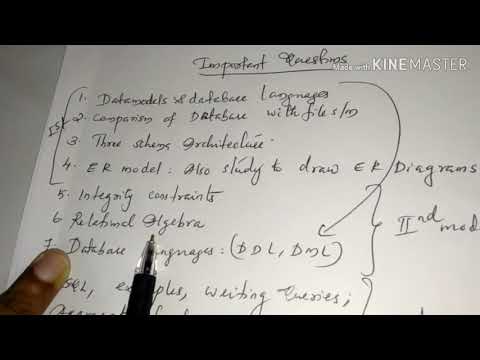 Important Questions
Made with KINEMASTER
1. Datamodels & database languages
Ist 2. Comparison of Database with file s/m
3. Three schema Architecture.
4. ER model : Also study to draw ER Diagrams
5. Integrity constraints
6. Relational Algebra
7. Database languages : (DDL, DML)
IInd mod
SQL, examples, writing Queries;